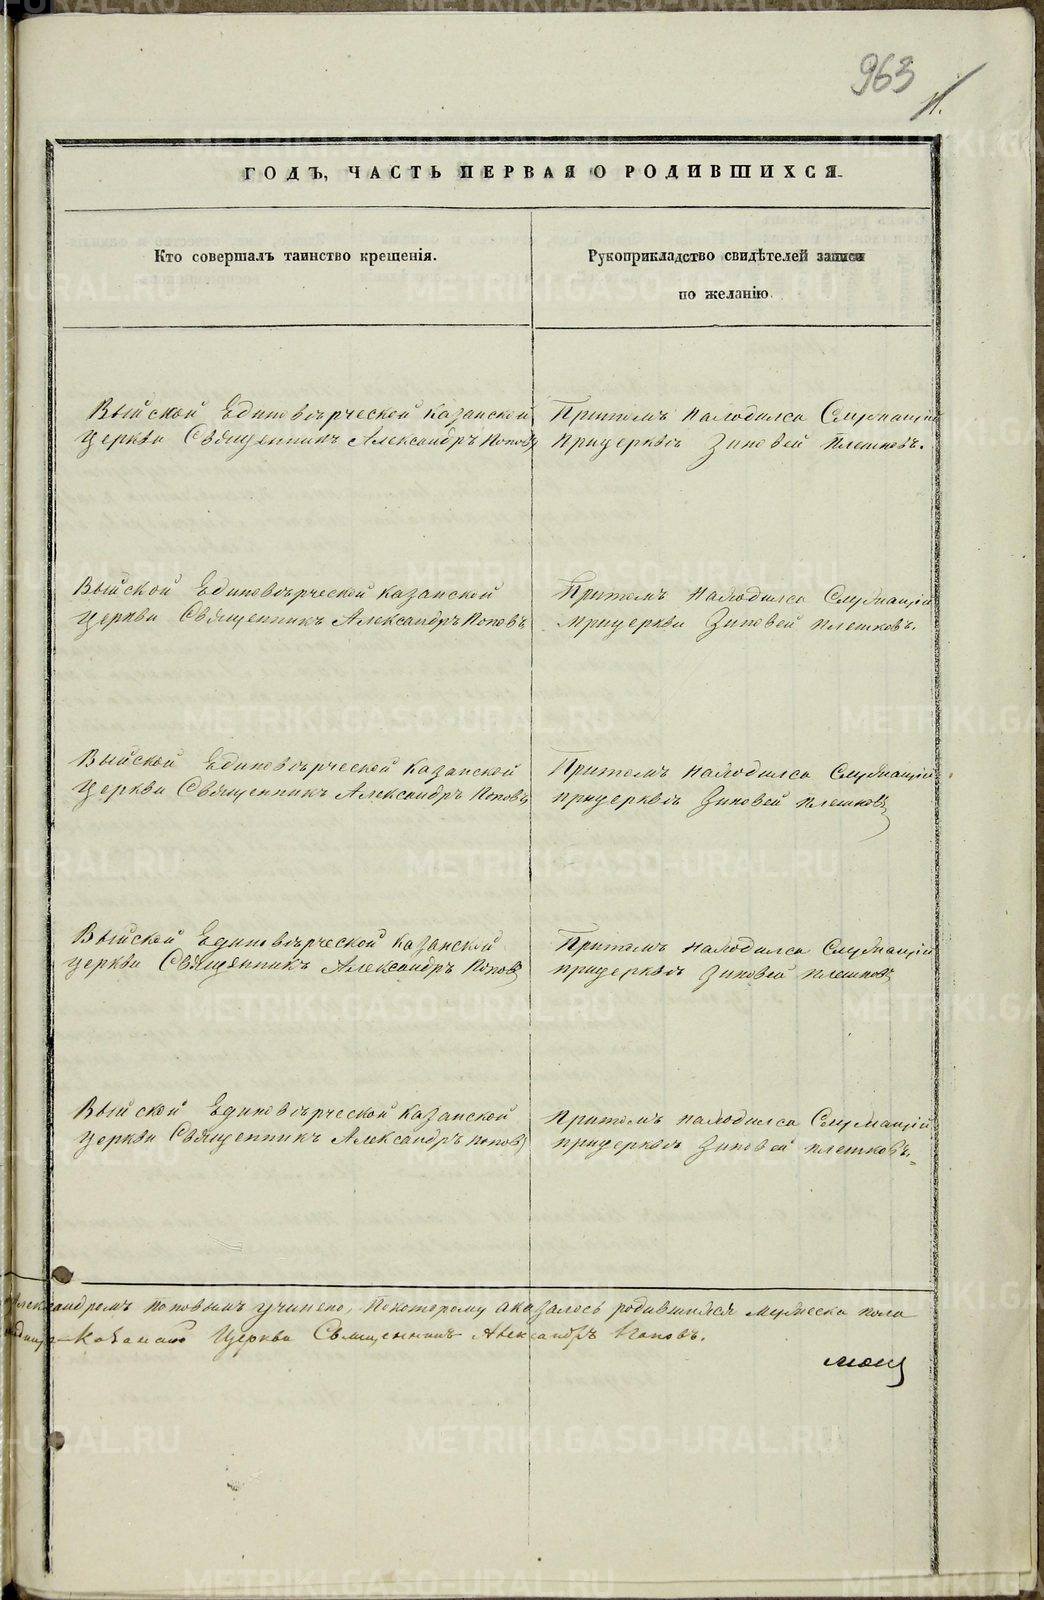 963
11.
ГОДЪ, ЧАСТЬ ПЕРВАЯ О РОДИВШИХСЯ.
Кто совершалъ таинство крещенія.
Рукоприкладство свидѣтелей записи
по желанію.
Выйской Единовѣрческой Казанской
церкви Священникъ Александръ Поповъ
Притомъ находился Служащій
прицерквѣ Зиновей Плешковъ.
Выйской Единовѣрческой Казанской
церкви Священникъ Александръ Поповъ
Притомъ находился Служащій
прицеркви Зиновей Плешковъ.
Выйской Единовѣрческой Казанской
Церкви Священникъ Александръ Поповъ
Притомъ находился Служащій
прицерквѣ Зиновей Плешковъ
Выйской Единовѣрческой Казанской
церкви Священникъ Александръ Поповъ
Притомъ находился Служащій
прицерквѣ Зиновей Плешковъ
Выйской Единовѣрческой Казанской
церкви Священникъ Александръ Поповъ
Притомъ находился Служащій
прицерквѣ Зиновей Плешковъ.
Александромъ Поповымъ учинено, Покоторому аказалось родившихся Мужеска пола
Церкви Священникъ Александръ Поповъ.
METRIKI.GASO-URAL.RU